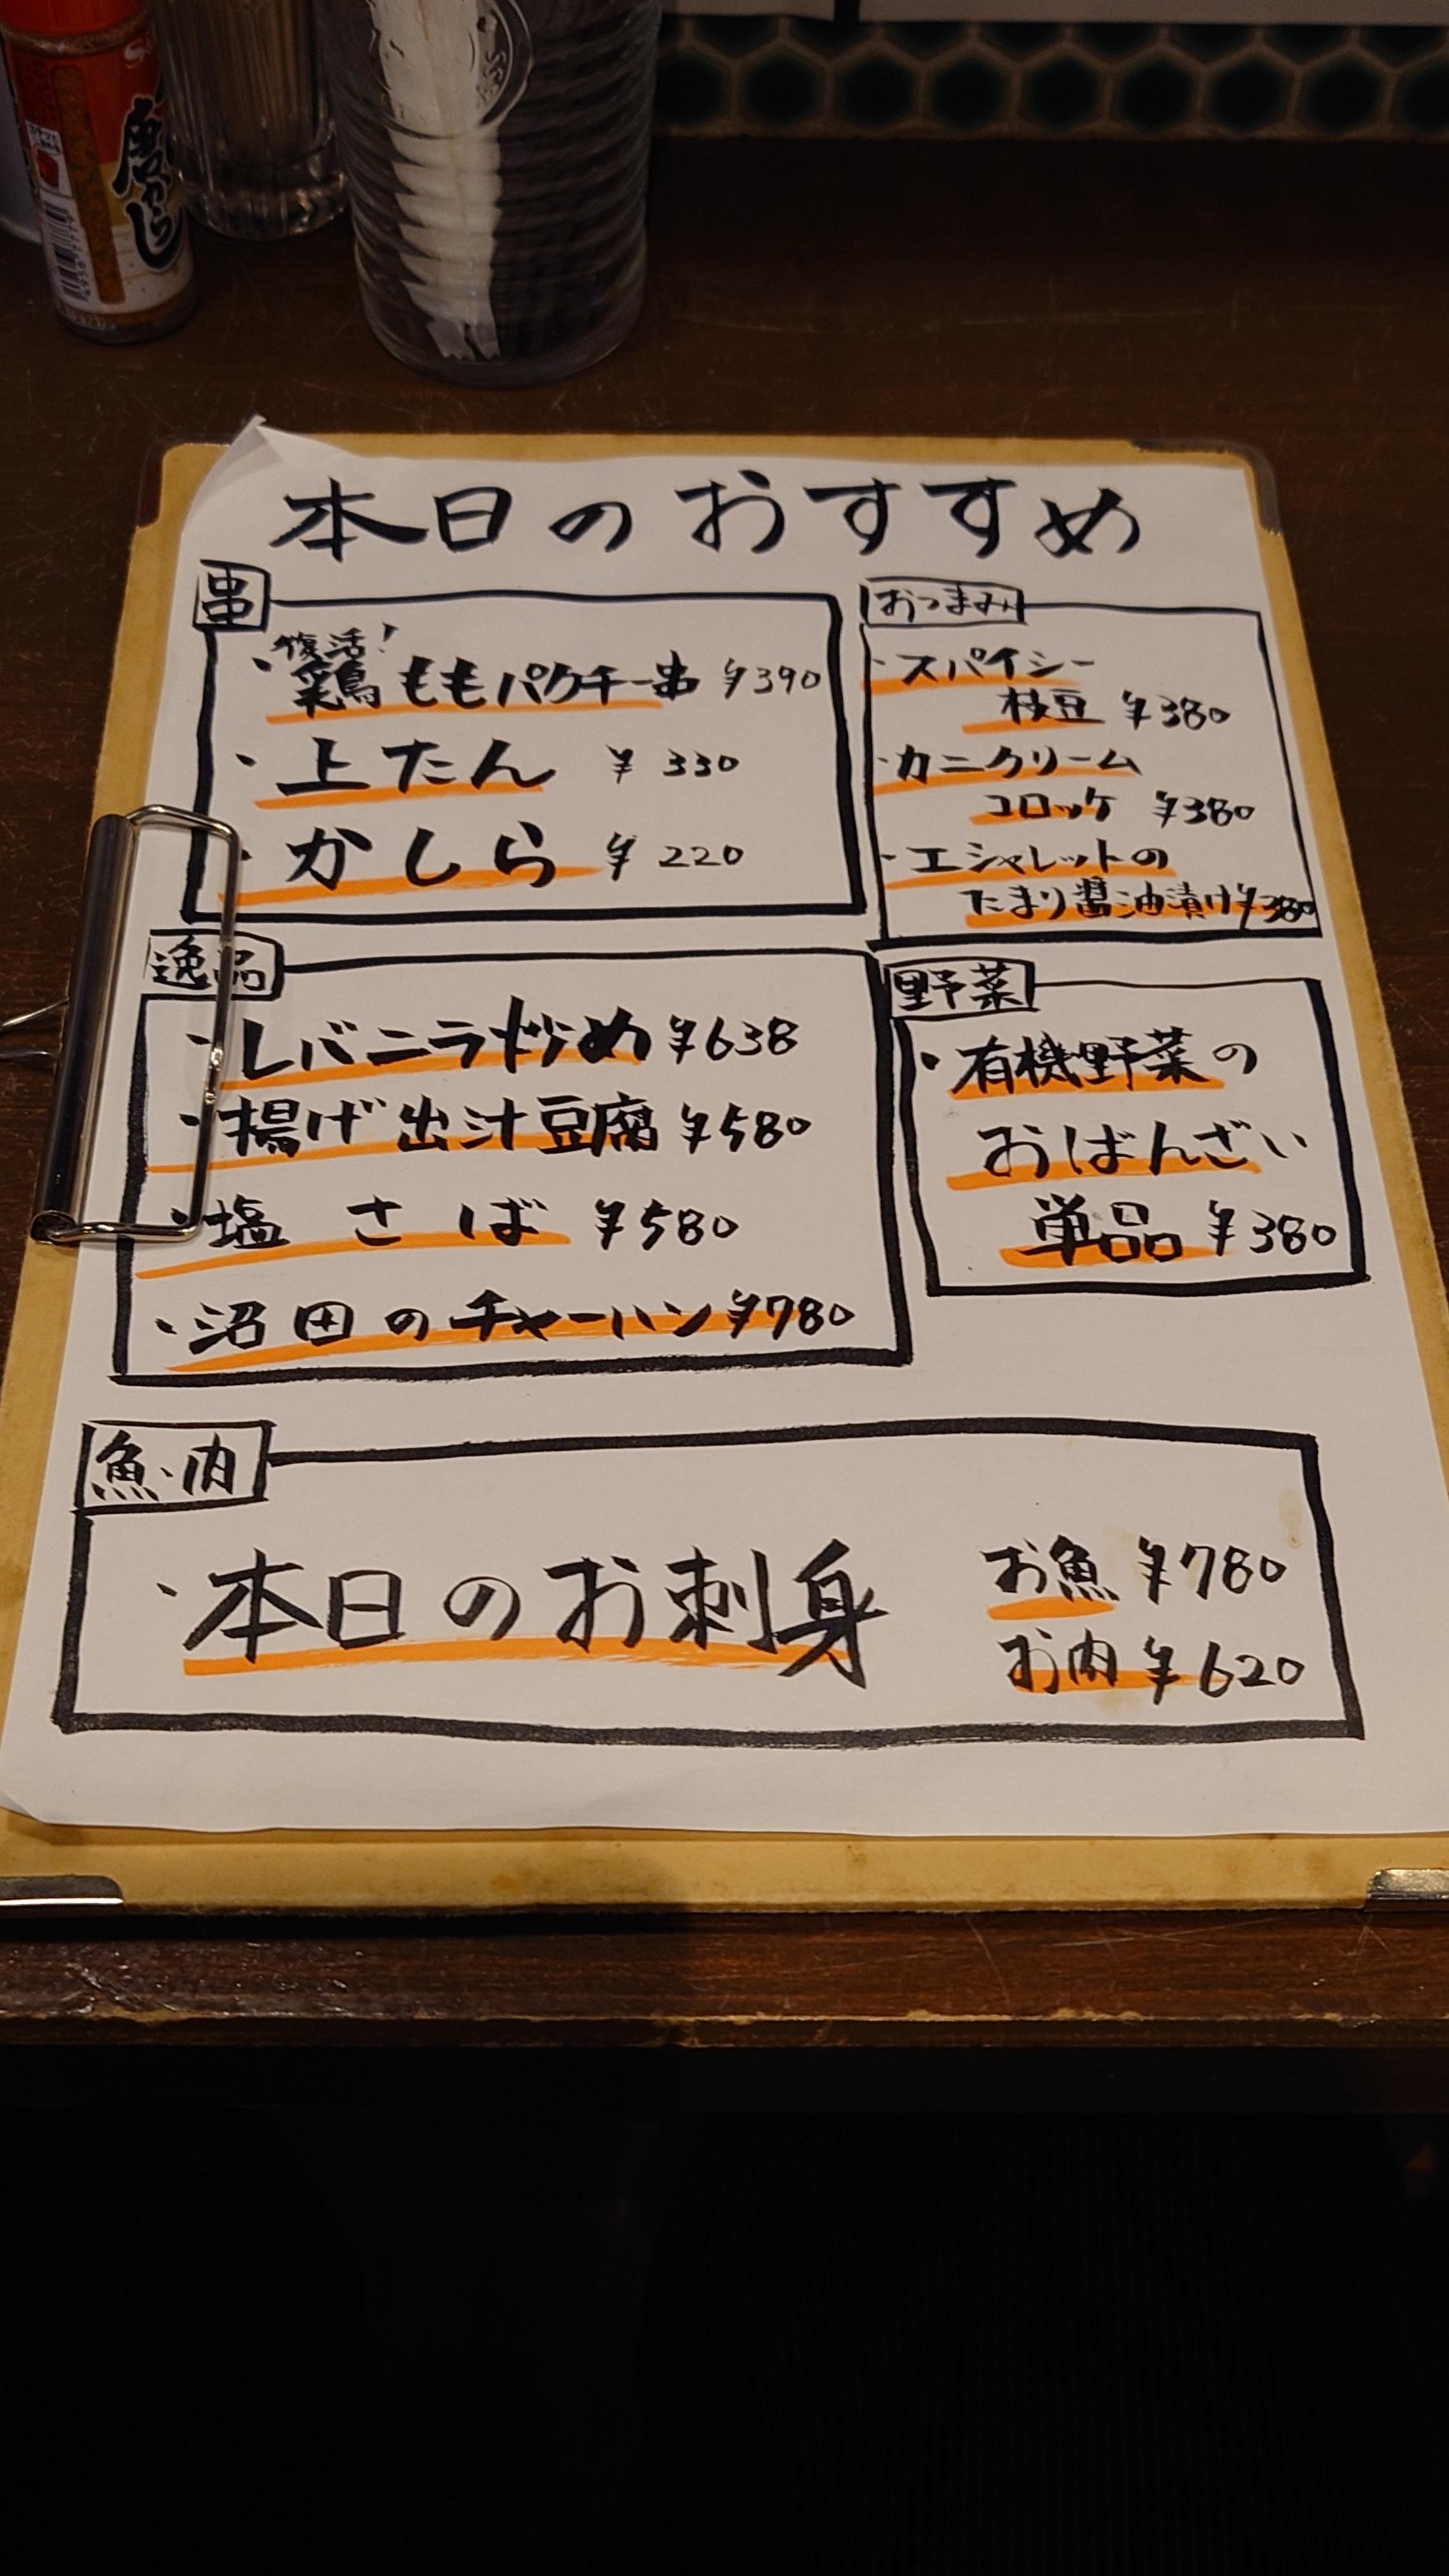 S&B
唐からし
本日のおすすめ
串
復活!
・鶏ももパクチー串 ¥390
・上たん ¥330
・かしら ¥220
おつまみ
・スパイシー
枝豆 ¥380
・カニクリーム
コロッケ ¥380
・エシャレットの
たまり醤油漬け ¥380
逸品
・レバニラ炒め ¥638
・揚げ出汁豆腐 ¥580
・塩さば ¥580
・沼田のチャーハン ¥780
野菜
・有機野菜の
おばんざい
単品 ¥380
魚・肉
・本日のお刺身
お魚 ¥780
お肉 ¥620